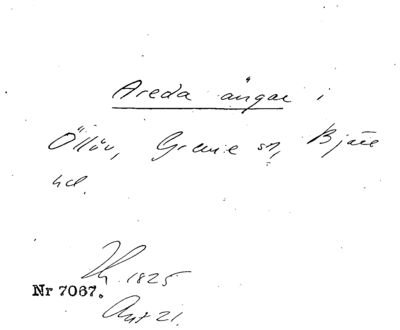 Areda ängar i
Öllöv, Grevie sn, Bjäre
hd.
1825
Nr 7067.
Akt 21.